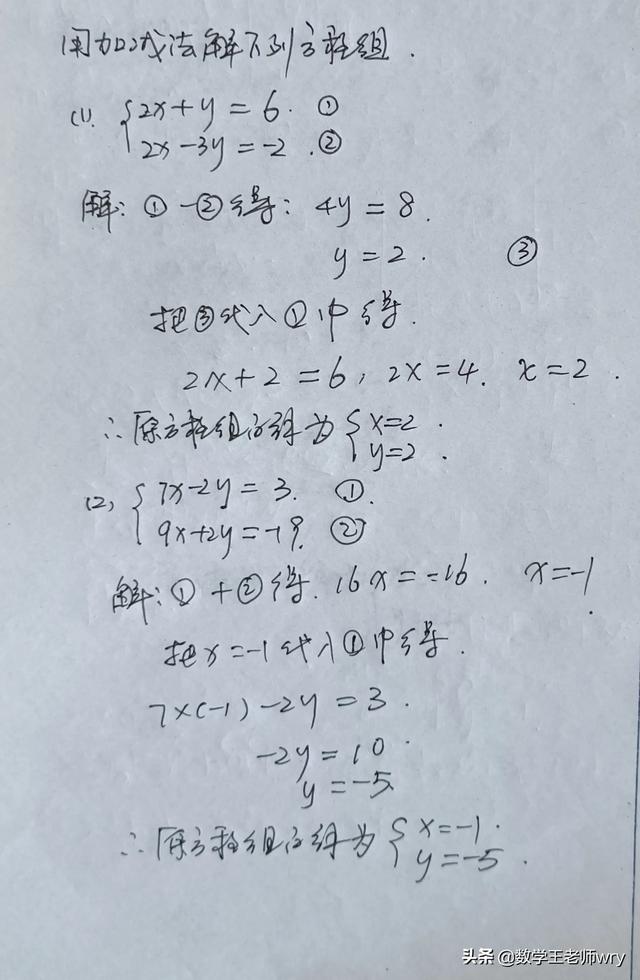 用加减法解下列方程组.
(1). {2x+y=6. ①
2x-3y=-2. ②
解: ①-②得: 4y=8.
y=2. ③
把③代入①中得.
2x+2=6, 2x=4. x=2.
∴原方程组的解为 {x=2.
y=2.
(2) {7x-2y=3. ①.
9x+2y=-19. ②
解: ①+②得. 16x=-16. x=-1.
把x=-1代入①中得.
7×(-1)-2y=3.
-2y=10.
y=-5
∴原方程组的解为 {x=-1.
y=-5.
头条 @数学王老师wry